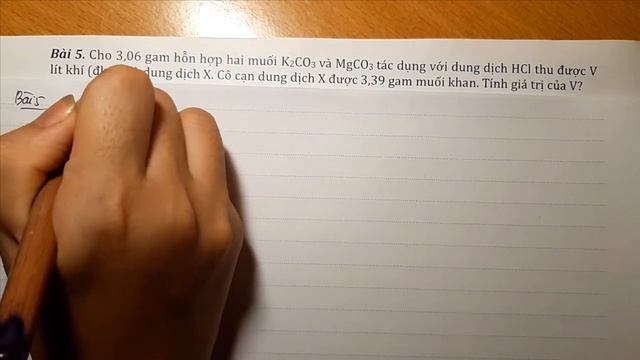 Bài 5. Cho 3,06 gam hỗn hợp hai muối K₂CO₃ và MgCO₃ tác dụng với dung dịch HCl thu được V
lít khí (đk dung dịch X. Cô cạn dung dịch X được 3,39 gam muối khan. Tính giá trị của V?
Bài 5